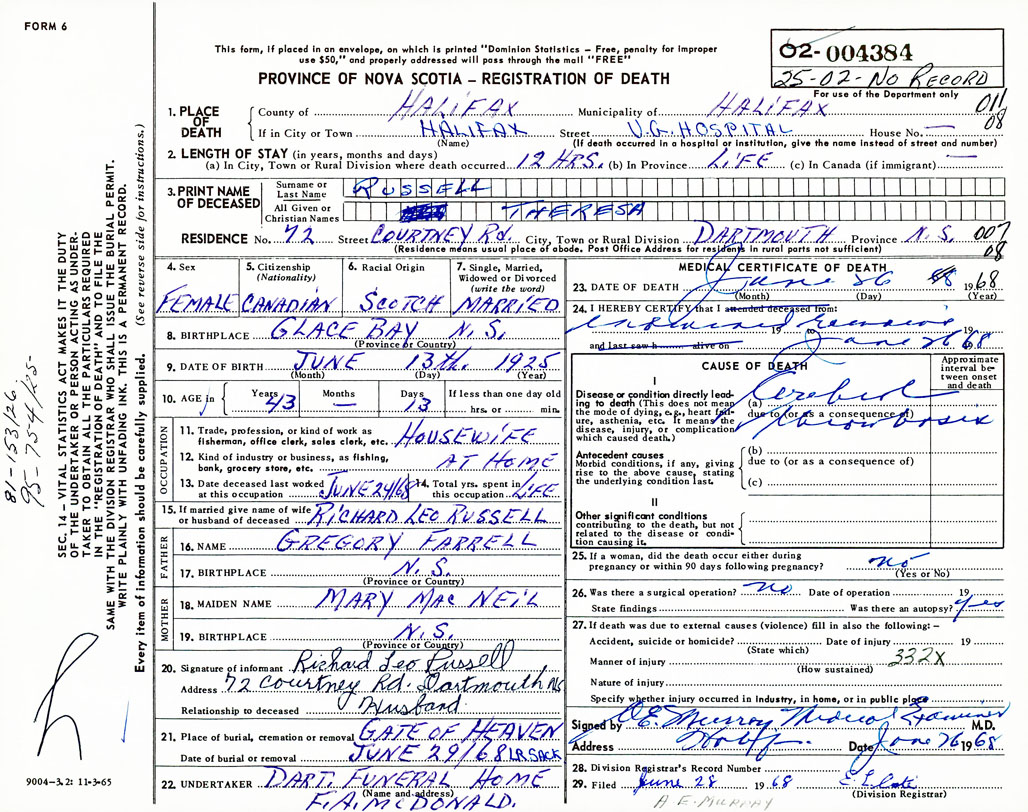 FORM 6
This form, if placed in an envelope, on which is printed "Dominion Statistics – Free, penalty for improper
use $50," and properly addressed will pass through the mail "FREE"
PROVINCE OF NOVA SCOTIA – REGISTRATION OF DEATH
02-004384
25-02-No RECORD
For use of the Department only
011
08
1. PLACE OF DEATH
County of HALIFAX Municipality of HALIFAX
If in City or Town HALIFAX Street V.G. HOSPITAL House No. —
(Name) (If death occurred in a hospital or institution, give the name instead of street and number)
2. LENGTH OF STAY (in years, months and days)
(a) In City, Town or Rural Division where death occurred 12 HRS. (b) In Province LIFE (c) In Canada (if immigrant) —
3. PRINT NAME OF DECEASED
Surname or Last Name RUSSELL
All Given or Christian Names THERESA
RESIDENCE No. 72 Street COURTNEY RD. City, Town or Rural Division DARTMOUTH Province N.S. 007
08
(Residence means usual place of abode. Post Office Address for residents in rural parts not sufficient)
4. Sex FEMALE
5. Citizenship (Nationality) CANADIAN
6. Racial Origin SCOTCH
7. Single, Married, Widowed or Divorced (write the word) MARRIED
8. BIRTHPLACE GLACE BAY N.S.
(Province or Country)
9. DATE OF BIRTH JUNE 13th. 1925
(Month) (Day) (Year)
10. AGE in Years 43 Months — Days 13 If less than one day old hrs. or min.
OCCUPATION
11. Trade, profession, or kind of work as fisherman, office clerk, sales clerk, etc. HOUSEWIFE
12. Kind of industry or business, as fishing, bank, grocery store, etc. AT HOME
13. Date deceased last worked at this occupation JUNE 24/68 14. Total yrs. spent in this occupation LIFE
15. If married give name of wife or husband of deceased RICHARD LEO RUSSELL
FATHER
16. NAME GREGORY FARRELL
17. BIRTHPLACE N.S.
(Province or Country)
MOTHER
18. MAIDEN NAME MARY MAC NEIL
19. BIRTHPLACE N.S.
(Province or Country)
20. Signature of informant Richard Leo Russell
Address 72 Courtney Rd. Dartmouth NS
Relationship to deceased Husband
21. Place of burial, cremation or removal GATE OF HEAVEN
Date of burial or removal JUNE 29/68 LR.SACK
22. UNDERTAKER DART. FUNERAL HOME
(Name and address)
F.A. MCDONALD.
MEDICAL CERTIFICATE OF DEATH
23. DATE OF DEATH June 26 1968
(Month) (Day) (Year)
24. I HEREBY CERTIFY that I attended deceased from:
19 19
and last saw h alive on June 26 1968
CAUSE OF DEATH
Approximate interval between onset and death
I
Disease or condition directly leading to death (This does not mean the mode of dying, e.g., heart failure, asthenia, etc. It means the disease, injury, or complication which caused death.)
(a) Cerebral
due to (or as a consequence of)
thrombosis
Antecedent causes
Morbid conditions, if any, giving rise to the above cause, stating the underlying condition last.
(b)
due to (or as a consequence of)
(c)
II
Other significant conditions contributing to the death, but not related to the disease or condition causing it.
25. If a woman, did the death occur either during
pregnancy or within 90 days following pregnancy? no
(Yes or No)
26. Was there a surgical operation? no Date of operation 19
State findings Was there an autopsy? yes
27. If death was due to external causes (violence) fill in also the following: –
Accident, suicide or homicide? Date of injury 19
(State which)
Manner of injury 332X
(How sustained)
Nature of injury
Specify whether injury occurred in Industry, in home, or in public place
Signed by E. Murray Medical Examiner M.D.
Address Date June 26 1968
28. Division Registrar's Record Number
29. Filed June 28 1968
(Division Registrar)
A E MURRAY
SEC. 14 – VITAL STATISTICS ACT MAKES IT THE DUTY
OF THE UNDERTAKER OR PERSON ACTING AS UNDER-
TAKER TO OBTAIN ALL THE PARTICULARS REQUIRED
IN THE "REGISTRATION OF DEATH" AND TO FILE THE
SAME WITH THE DIVISION REGISTRAR WHO SHALL ISSUE THE BURIAL PERMIT.
WRITE PLAINLY WITH UNFADING INK. THIS IS A PERMANENT RECORD.
Every item of information should be carefully supplied. (See reverse side for instructions.)
81-153126
95-754125-
9004-3.2: 11-3-65